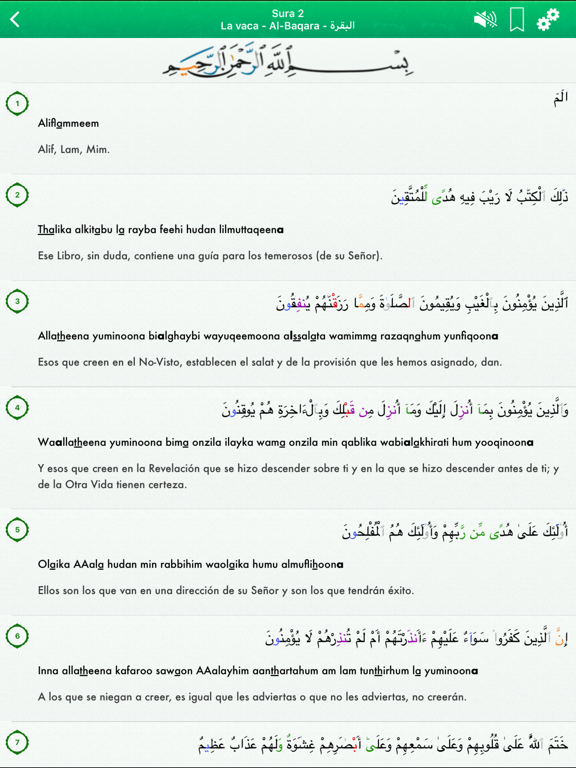 Sura 2
La vaca - Al-Baqara - البقرة
بِسْمِ ٱللَّهِ ٱلرَّحْمَٰنِ ٱلرَّحِيمِ
1
الٓمٓ
Aliflammeem
Alif, Lam, Mim.
2
ذَٰلِكَ ٱلْكِتَٰبُ لَا رَيْبَ فِيهِ هُدًى لِّلْمُتَّقِينَ
Thalika alkitabu la rayba feehi hudan lilmuttaqeena
Ese Libro, sin duda, contiene una guía para los temerosos (de su Señor).
3
ٱلَّذِينَ يُؤْمِنُونَ بِٱلْغَيْبِ وَيُقِيمُونَ ٱلصَّلَوٰةَ وَمِمَّا رَزَقْنَٰهُمْ يُنفِقُونَ
Allatheena yuminoona bialghaybi wayuqeemoona alssalata wamimma razaqnahum yunfiqoona
Esos que creen en el No-Visto, establecen el salat y de la provisión que les hemos asignado, dan.
4
وَٱلَّذِينَ يُؤْمِنُونَ بِمَآ أُنزِلَ إِلَيْكَ وَمَآ أُنزِلَ مِن قَبْلِكَ وَبِٱلْءَاخِرَةِ هُمْ يُوقِنُونَ
Waallatheena yuminoona bima onzila ilayka wama onzila min qablika wabialakhirati hum yooqinoona
Y esos que creen en la Revelación que se hizo descender sobre ti y en la que se hizo descender antes de ti; y
de la Otra Vida tienen certeza.
5
أُو۟لَٰٓئِكَ عَلَىٰ هُدًى مِّن رَّبِّهِمْ وَأُو۟لَٰٓئِكَ هُمُ ٱلْمُفْلِحُونَ
Olaika AAala hudan min rabbihim waolaika humu almuflihoona
Ellos son los que van en una dirección de su Señor y son los que tendrán éxito.
6
إِنَّ ٱلَّذِينَ كَفَرُوا۟ سَوَآءٌ عَلَيْهِمْ ءَأَنذَرْتَهُمْ أَمْ لَمْ تُنذِرْهُمْ لَا يُؤْمِنُونَ
Inna allatheena kafaroo sawaon AAalayhim aanthartahum am lam tunthirhum la yuminoona
A los que se niegan a creer, es igual que les adviertas o que no les adviertas, no creerán.
7
خَتَمَ ٱللَّهُ عَلَىٰ قُلُوبِهِمْ وَعَلَىٰ سَمْعِهِمْ وَعَلَىٰٓ أَبْصَٰرِهِمْ غِشَٰوَةٌ وَلَهُمْ عَذَابٌ عَظِيمٌ